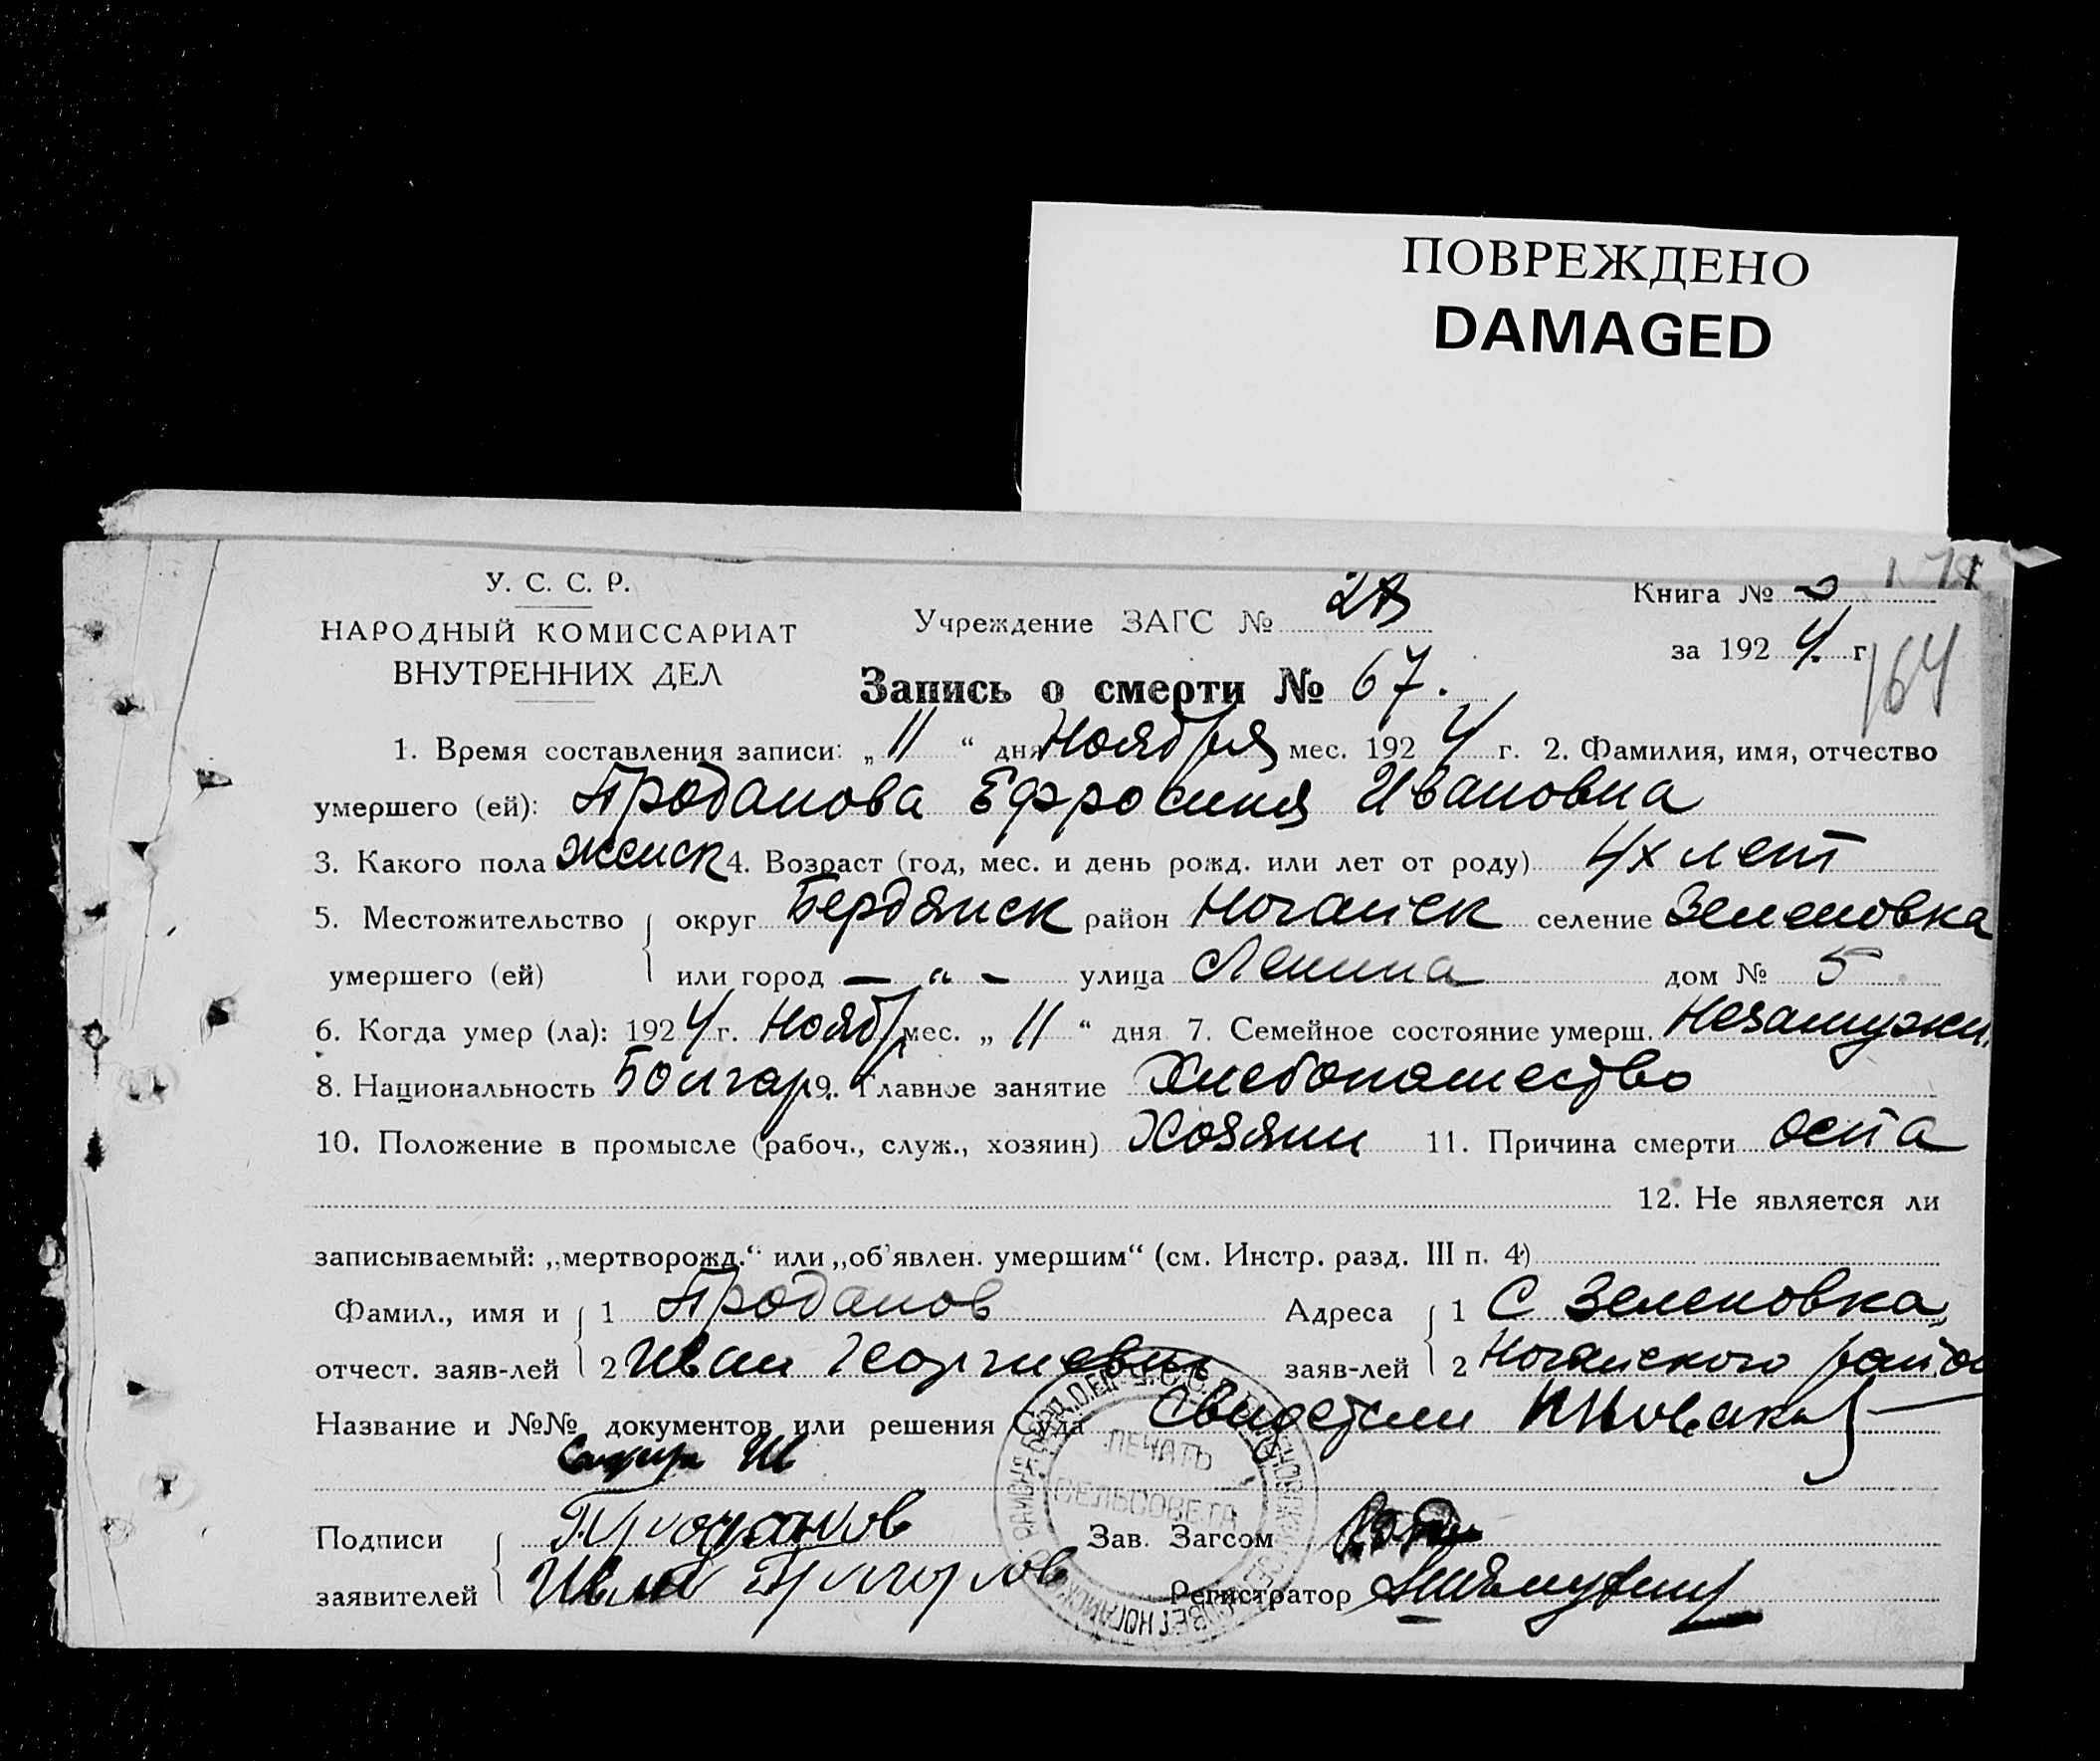 ПОВРЕЖДЕНО
DAMAGED
У. С. С. Р.
НАРОДНЫЙ КОМИССАРИАТ
ВНУТРЕННИХ ДЕЛ
Учреждение ЗАГС №
Книга №
за 1924. г.
164
Запись о смерти № 67.
1. Время составления записи: „11“ дня Ноября мес. 1924 г. 2. Фамилия, имя, отчество
умершего (ей): Проданова Ефросиния Ивановна
3. Какого пола женск 4. Возраст (год, мес. и день рожд. или лет от роду) 4х лет
5. Местожительство округ Бердянск район Ногайск селение Зеленовка
умершего (ей) или город — „ — улица Ленина дом № 5
6. Когда умер (ла): 1924 г. Нояб мес. „11“ дня 7. Семейное состояние умерш. Незамужн.
8. Национальность Болгар 9. Главное занятие Хлебопашество
10. Положение в промысле (рабоч., служ., хозяин) Хозяин 11. Причина смерти оспа
12. Не является ли
записываемый: „мертворожд.“ или „об'явлен. умершим“ (см. Инстр. разд. III п. 4)
Фамил., имя и 1 Проданов Адреса 1 С Зеленовка,
отчест. заяв-лей 2 Иван Георгиевич заяв-лей 2 Ногайского район
Название и №№ документов или решения Суда Свидетели
ПЕЧАТЬ
СЕЛЬСОВЕТА
Подписи Проданов Зав. Загсом
заявителей Регистратор